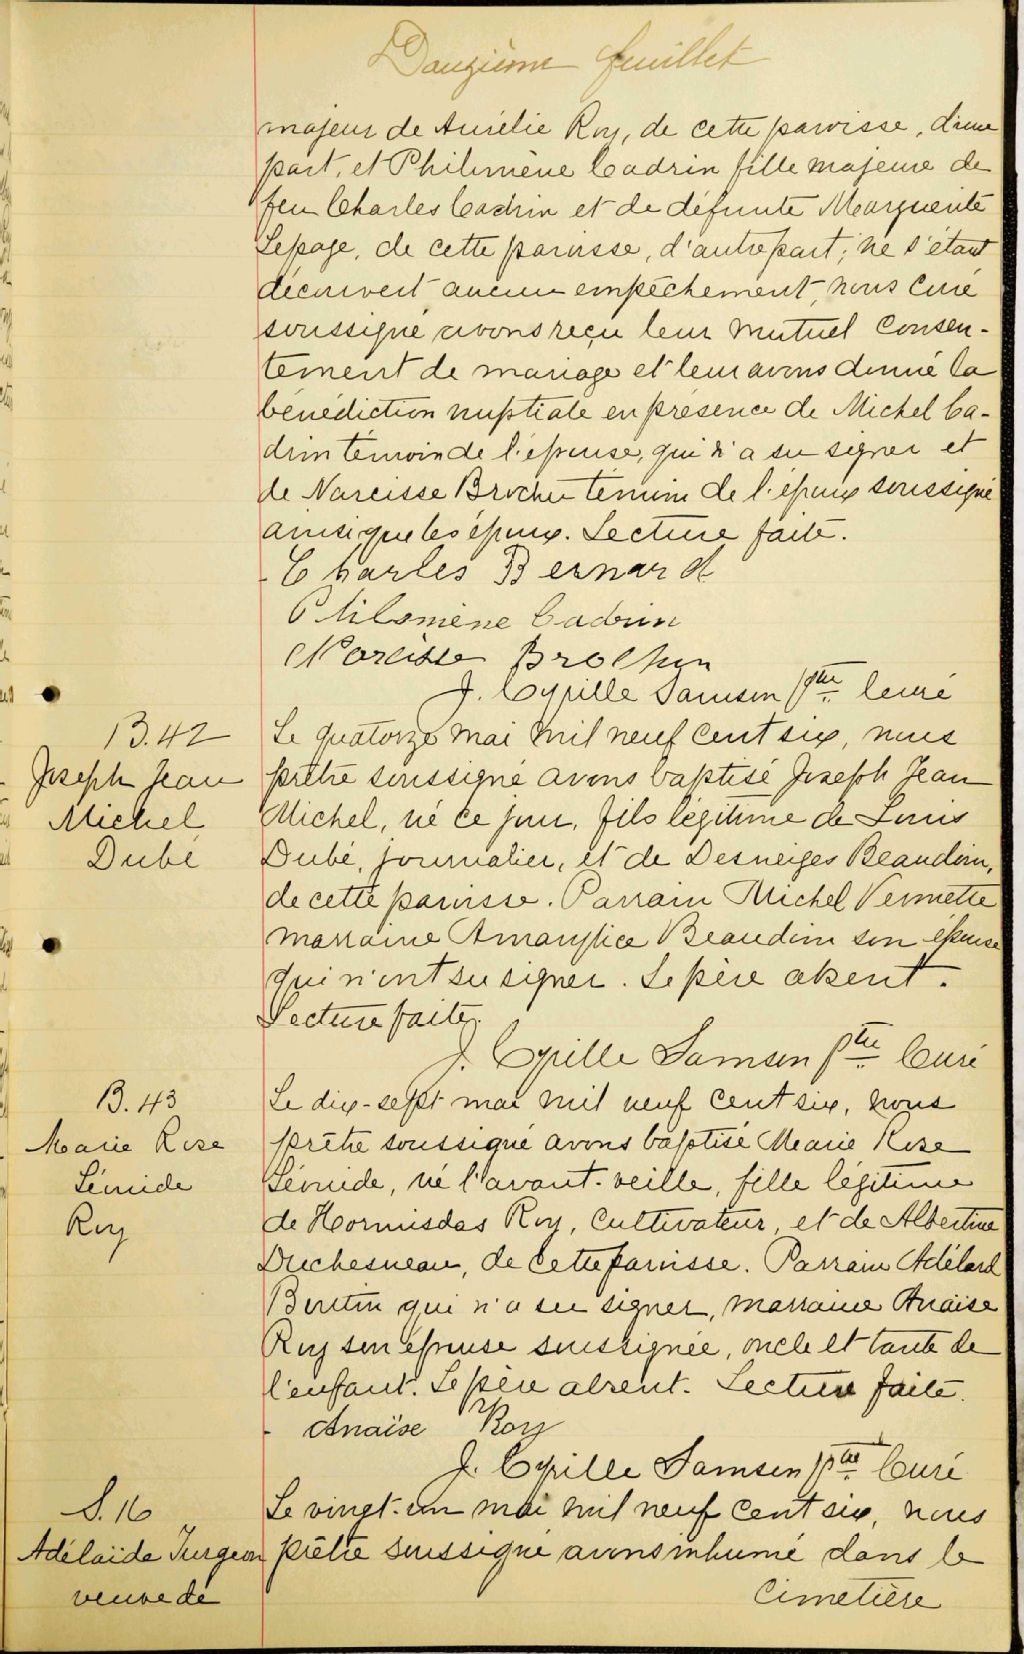 Douzième feuillet
majeur de Aurélie Roy, de cette paroisse, d'une
part, et Philomène Cadrin fille majeure de
feu Charles Cadrin et de défunte Marguerite
Lepage, de cette paroisse, d'autre part; ne s'étant
découvert aucun empêchement, nous Curé
soussigné avons reçu leur mutuel consen-
tement de mariage et leur avons donné la
bénédiction nuptiale en présence de Michel Ca-
drin témoin de l'épouse, qui n'a su signer et
de Narcisse Brochu témoin de l'époux soussigné
ainsi que les époux. Lecture faite.
Charles Bernard
Philomène Cadrin
Narcisse Brochu
J. Cyrille Samson Ptre Curé
B. 42
Joseph Jean
Michel
Dubé
Le quatorze mai mil neuf cent six, nous
prêtre soussigné avons baptisé Joseph Jean
Michel, né ce jour, fils légitime de Louis
Dubé, journalier, et de Desneiges Beaudoin,
de cette paroisse. Parrain Michel Vermette
marraine Amarylice Beaudoin son épouse
qui n'ont su signer. Le père absent.
Lecture faite.
J. Cyrille Samson Ptre Curé
B. 43
Marie Rose
Léonide
Roy
Le dix-sept mai mil neuf cent six, nous
prêtre soussigné avons baptisé Marie Rose
Léonide, né l'avant-veille, fille légitime
de Hormisdas Roy, cultivateur, et de Albertine
Duchesneau, de cette paroisse. Parrain Adélard
Boutin qui n'a su signer, marraine Anaïse
Roy son épouse soussignée, oncle et tante de
l'enfant. Le père absent. Lecture faite.
Anaïse Roy
J. Cyrille Samson Ptre Curé
S. 16
Adélaïde Turgeon
veuve de
Le vingt-un mai mil neuf cent six, nous
prêtre soussigné avons inhumé dans le
cimetière